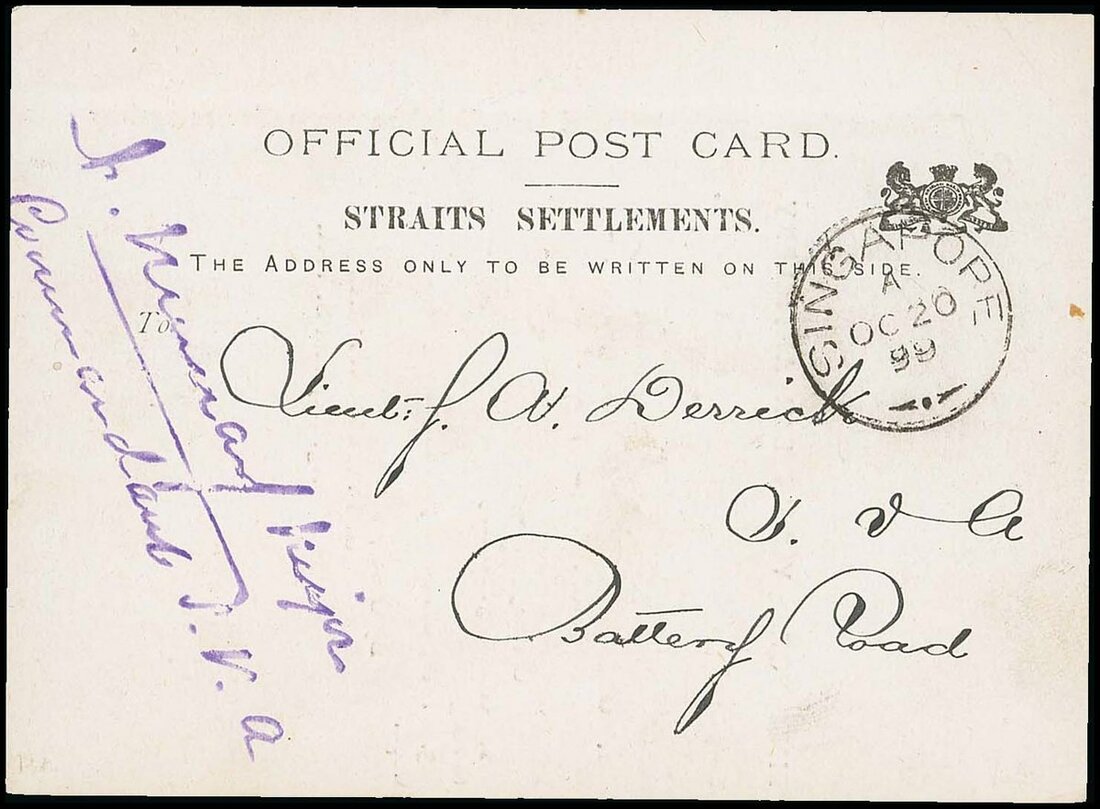 OFFICIAL POST CARD.
STRAITS SETTLEMENTS.
THE ADDRESS ONLY TO BE WRITTEN ON THIS SIDE.
SINGAPORE
A
OC 20
99
To
Lieut: J. A. Derrick
S. V A
Battery Road
Major
Commandant S. V. A